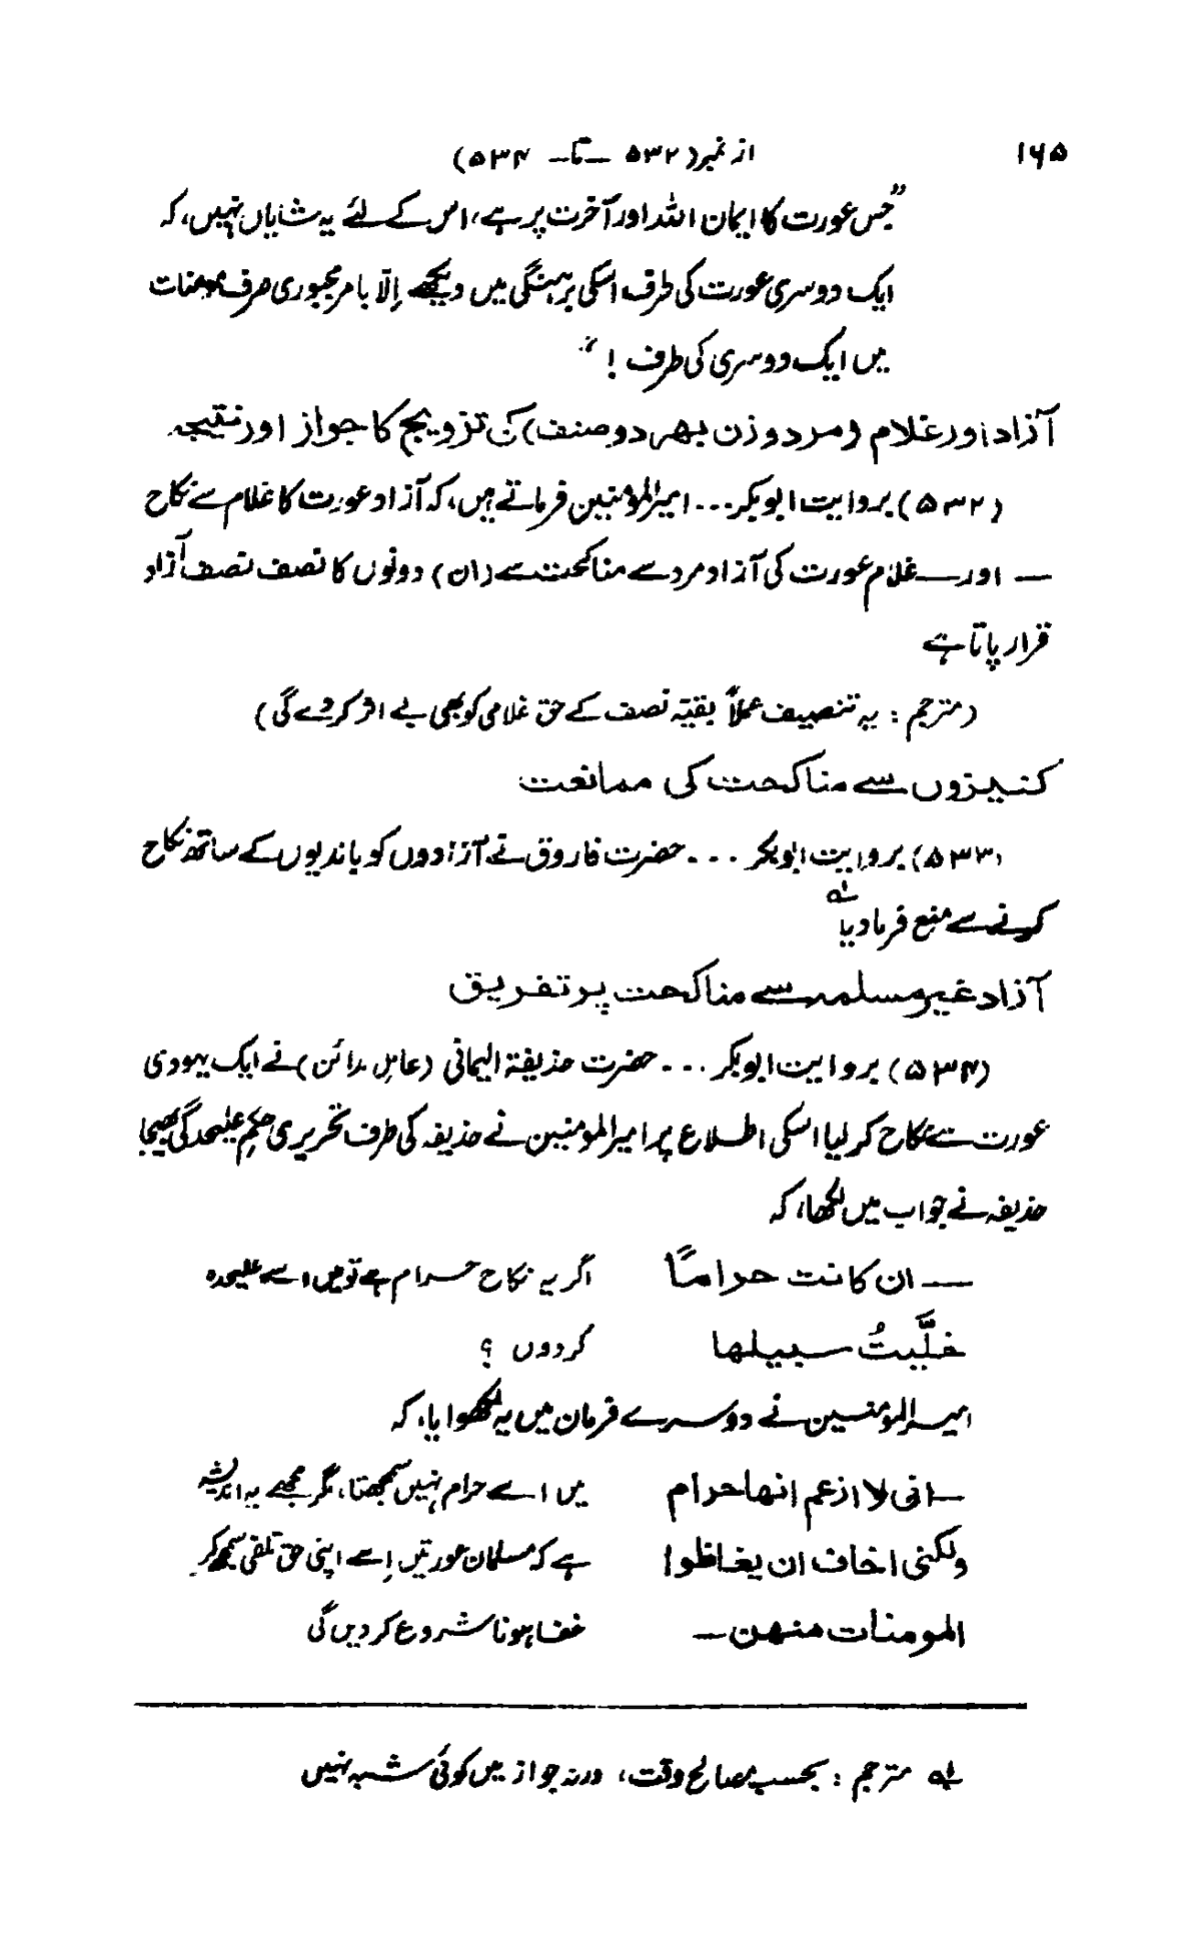 ۱۶۵ از نمبر (۵۳۲ — تا — ۵۳۴)
"جس عورت کا ایمان اللہ اور آخرت پر ہے، اس کے لئے یہ شایاں نہیں، کہ
ایک دوسری عورت کی طرف اسکی برہنگی میں دیکھے اِلّا بامرِ مجبوری صرف مومنات
میں ایک دوسری کی طرف !"
آزاد اور غلام (مرد و زن بھر دو صنف) کی تزویج کا جواز اور نتیجہ
(۵۳۲) بروایت ابوبکر... امیر المؤمنین فرماتے ہیں، کہ آزاد عورت کا غلام سے نکاح
— اور — غلام عورت کی آزاد مرد سے مناکحت سے (ان) دونوں کا نصف نصف آزاد
قرار پاتا ہے
(مترجم : یہ تنصیف عملاً بقیّہ نصف کے حق غلامی کو بھی بے اثر کر دے گی)
کنیزوں سے مناکحت کی ممانعت
(۵۳۳) بروایت ابوبکر ... حضرت فاروق نے آزادوں کو باندیوں کے ساتھ نکاح
کرنے سے منع فرما دیا ؎۱
آزاد غیر مسلمہ سے مناکحت پر تفریق
(۵۳۴) بروایت ابوبکر ... حضرت حذیفۃ الیمانی (عامل مدائن) نے ایک یہودی
عورت سے نکاح کر لیا اسکی اطلاع پر امیر المومنین نے حذیفہ کی طرف تحریری حکم علیحدگی بھیجا
حذیفہ نے جواب میں لکھا، کہ
— ان کانت حراماً اگر یہ نکاح حرام ہے تو میں اسے علیحدہ
خلَّیتُ سبیلھا کردوں ؟
امیر المومنین نے دوسرے فرمان میں یہ لکھوایا، کہ
— انی لا ازعم انھا حرام میں اسے حرام نہیں سمجھتا، مگر مجھے یہ اندیشہ
ولکنی اخاف ان یغاظوا ہے کہ مسلمان عورتیں اِسے اپنی حق تلفی سمجھ کر
المومنات منھن — خفا ہونا شروع کر دیں گی
؎۱ مترجم : بحسب مصالح وقت، ورنہ جواز میں کوئی شبہ نہیں